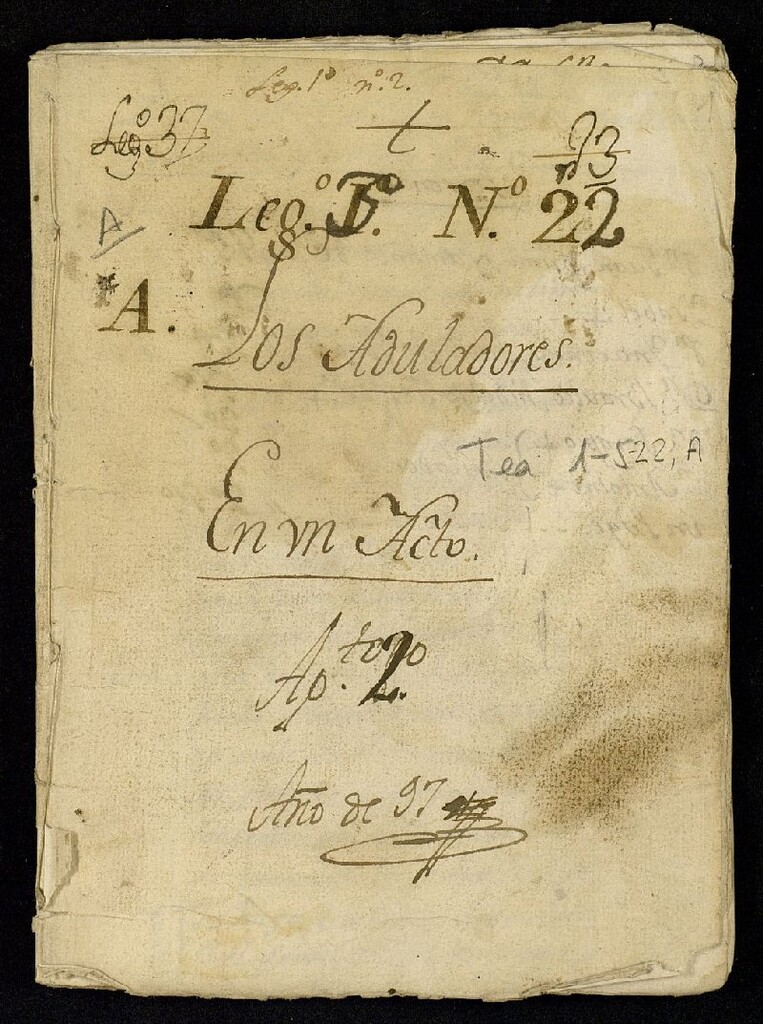 Leg.º 1º nº. 2.
Legº 37
Leg.º N.º 22
A
A.
Los Aduladores.
Tea 1-5-22, A
En vn Acto.
Ap.to 2.
Año de 97